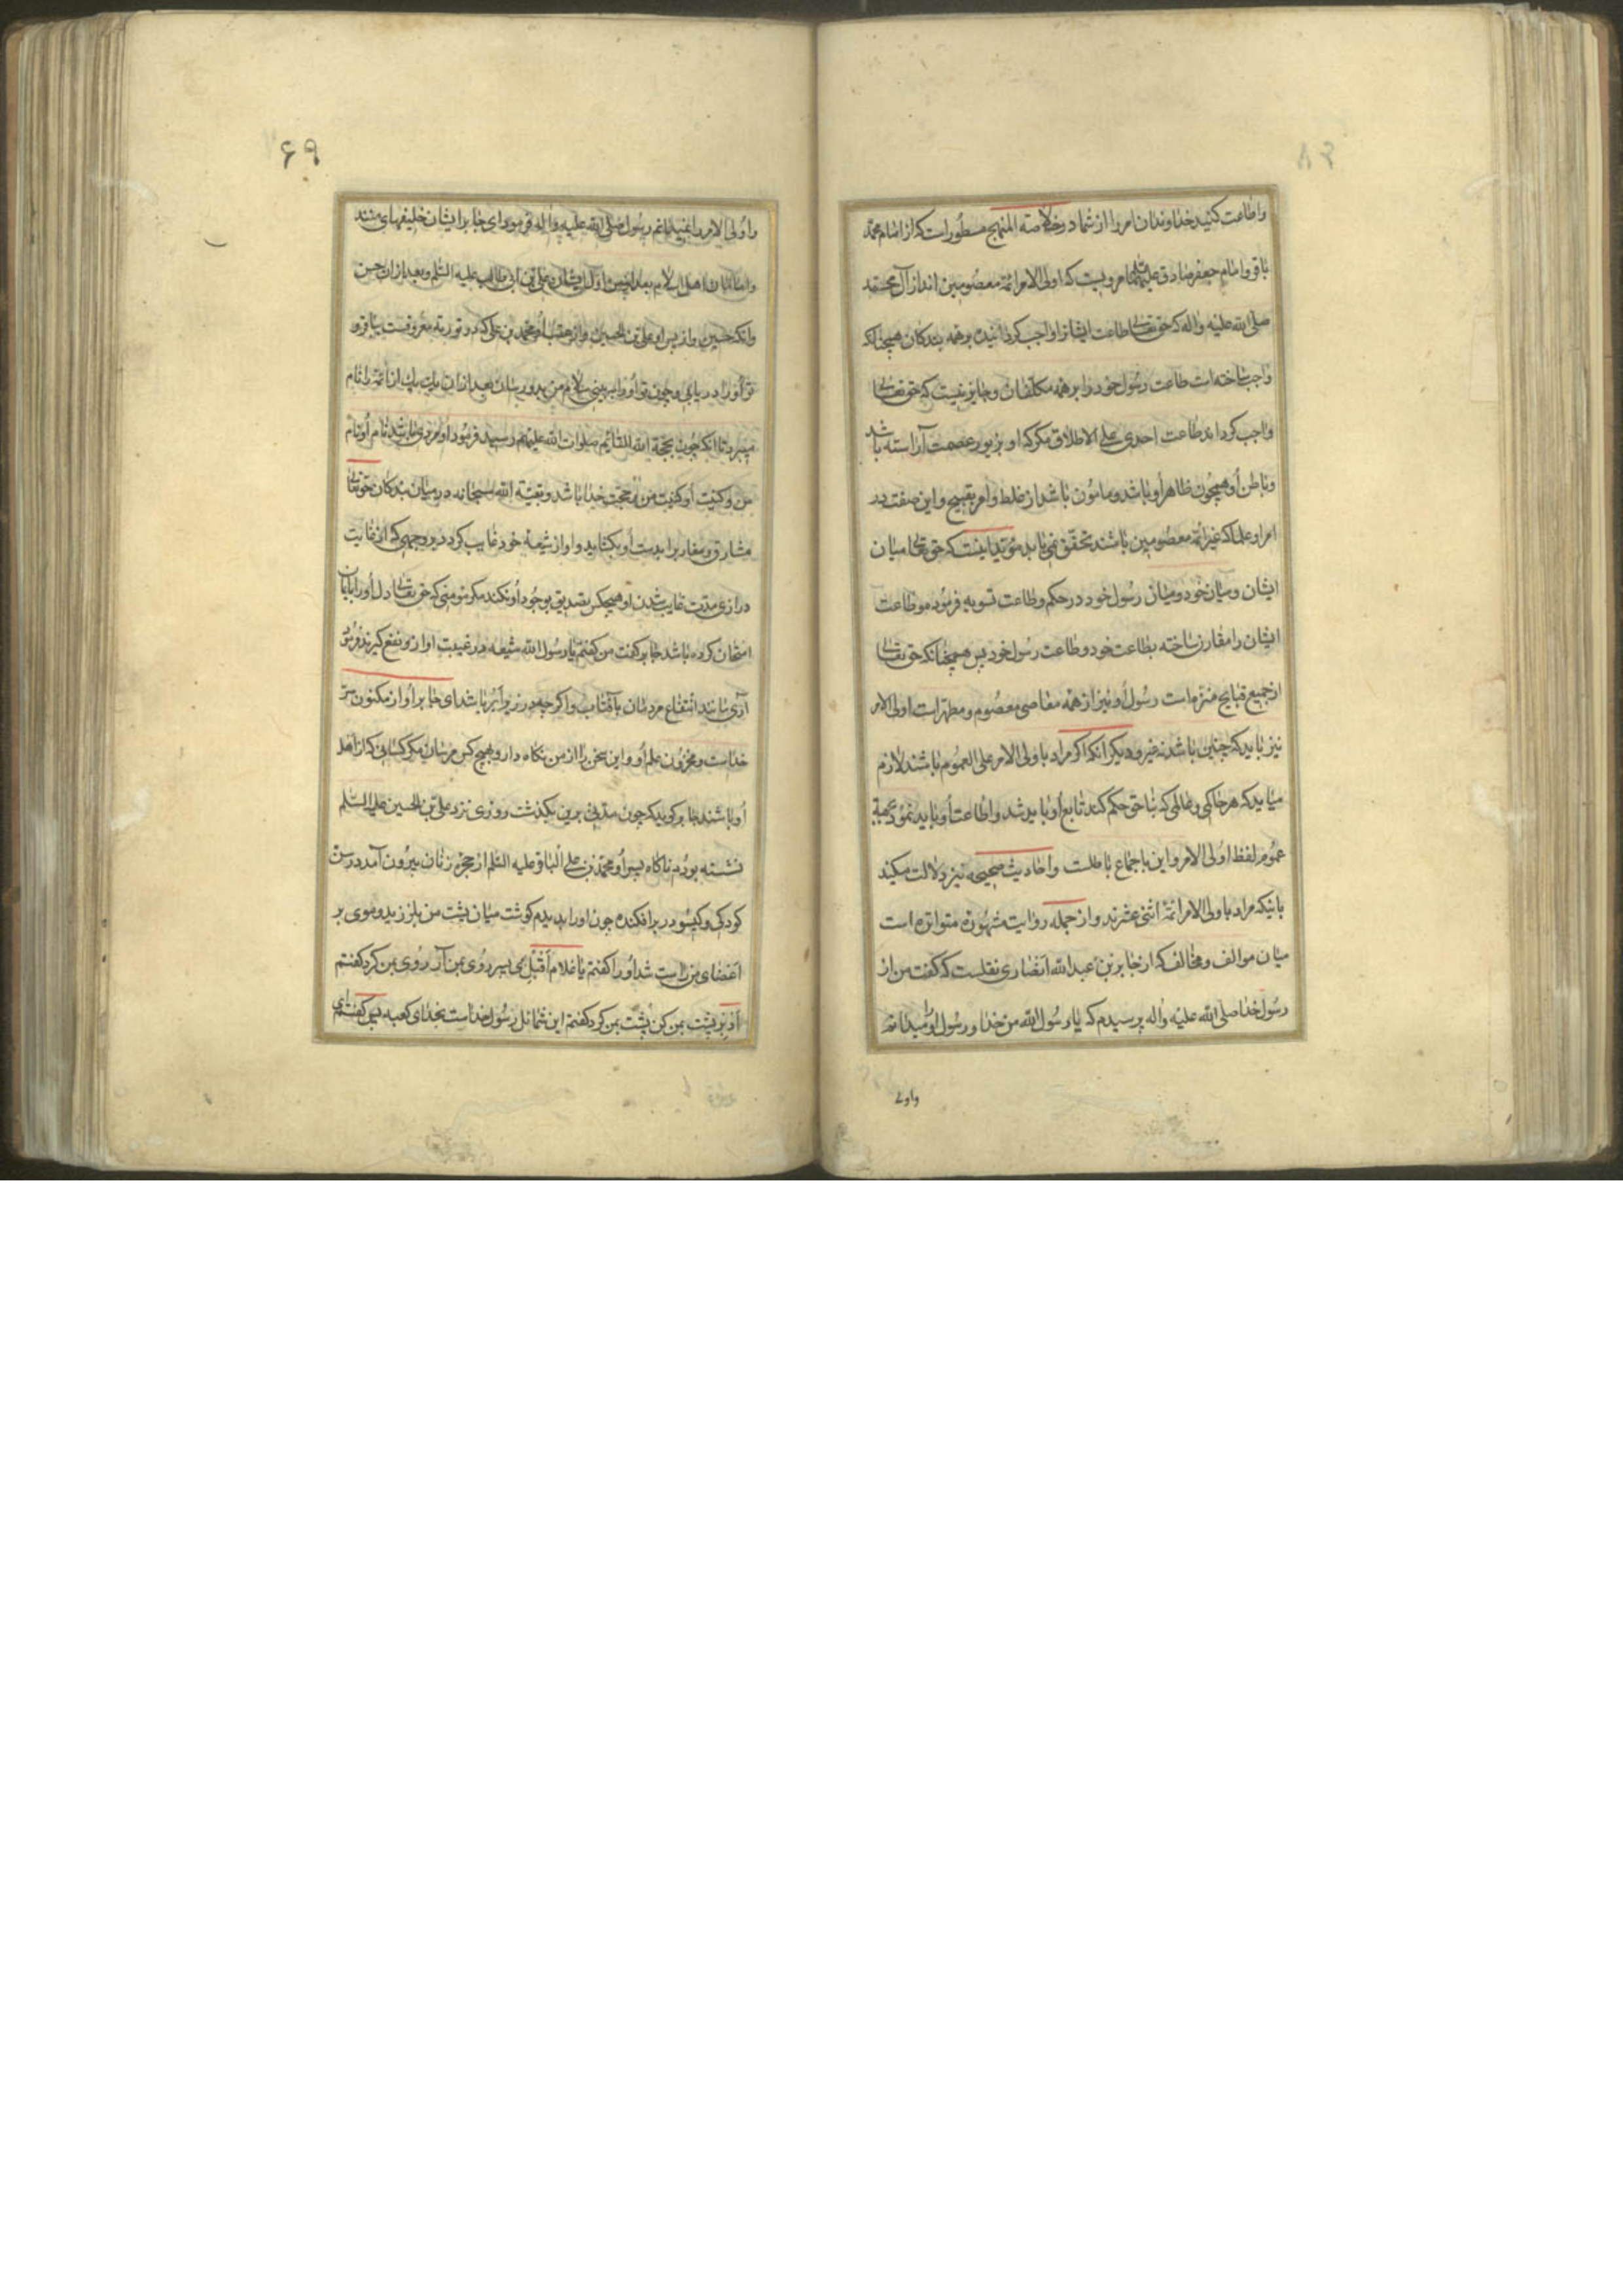 واطاعت کنید خداوندان امر را از شما در خلاصة المنهج مسطور است که از امام محمد
باقر و امام جعفر صادق علیهما مرویست که اولی الامر ائمه معصومین اند از آل محمد
صلی الله علیه واله که حق تعالی طاعت ایشانرا واجب کردانیده بر همه بندکان همچنانکه
واجب ساخته است طاعت رسول خود را بر همه مکلفان و جایز نیست که حق تعالی
واجب کرداند طاعت احدی علی الاطلاق مکر که او بزیور عصمت آراسته باشد
و باطن او همچون ظاهر او باشد و مامون باشد از غلط و امر بقبیح و این صفت در
امرا و علما که غیر ائمه معصومین باشند تحقق نمی یابد مؤید اینست که حق تعالی میان
ایشان و میان خود و میان رسول خود در حکم وطاعت تسویه فرموده و طاعت
ایشان را مقارن ساخته بطاعت خود و طاعت رسول خود پس همچنانکه حق تعالی
از جمیع قبایح منزه است رسول او نیز از همه معاصی معصوم و مطهر است اولی الامر
نیز باید که چنین باشد نه غیر و دیکر آنکه اکر مراد باولی الامر علی العموم باشند لازم
میاید که هر حاکمی و ظالمی که بناحق حکم کند تابع او باید شد و اطاعت او باید نمود بجهة
عموم لفظ اولی الامر و این باجماع باطلست واحادیث صحیحه نیز دلالت میکند
باینکه مراد باولی الامر ائمه اثنی عشرند و از جمله روایت مشهوره متواتره است
میان موالف و مخالف که از جابر بن عبدالله انصاری نقلست که کفت من از
رسول خدا صلی الله علیه واله پرسیدم که یا رسول الله من خدا و رسول او را میدانم
واولی
۶۹
واولی الامر را نمیدانم رسول صلی الله علیه واله فرمود ای جابر ایشان خلیفهای منند
وامامان اهل اسلام بعد از من اول ایشان علی بن ابی طالب علیه السلم و بعد از ان حسن
وانکه حسین واز پس او علی بن الحسین و از عقب او محمد بن علی که در توریة معروفست بباقر و
تو او را دریابی و چون تو او را به بینی سلام من بدو رسان بعد از ان یک یک از ائمه را نام
میبرد تا انکه چون بحجة الله القائم صلوات الله علیهم رسید فرمود او مردی باشد نام او نام
من و کنیت او کنیت من حجت خدا باشد و بقیة الله سبحانه در میان بندکان حق تعالی
مشارق و مغارب را بدست او بکشاید و او از شیعه خود غایب کردد بر وجهی که از غایت
درازی مدت غایب شدن او هیچکس تصدیق بوجود او نکند مکر مومنی که حق تعالی دل او را بایمان
امتحان کرده باشد جابر کفت من کفتم یا رسول الله شیعه در غیبت او از و نفع کیرند فرمود
آری مانند انتفاع مردمان بآفتاب و اکر چه در زیر ابر باشد ای جابر او از مکنون سر
خداست و مخزون علم او و این سخن را از من نکاه دار و بهیچ کس مرسان مکر کسانی که از اهل
او باشند جابر کوید که چون مدتی برین بکذشت روزی نزد علی بن الحسین علیه السلم
نشسته بودم ناکاه پسر او محمد بن علی الباقر علیه السلم از حجره زنان بیرون آمد در سن
کودکی و کیسو در بر افکنده چون او را بدیدم کوشت میان پشت من بلرزید و موی بر
اعضای من راست شد او را کفتم یا غلام اقبل ای پسر روی بمن آر روی بمن کرد کفتم
ادبر پشت بمن کن پشت بمن کرد کفتم این شمائل رسول خداست بخدای کعبه پس کفتم ای